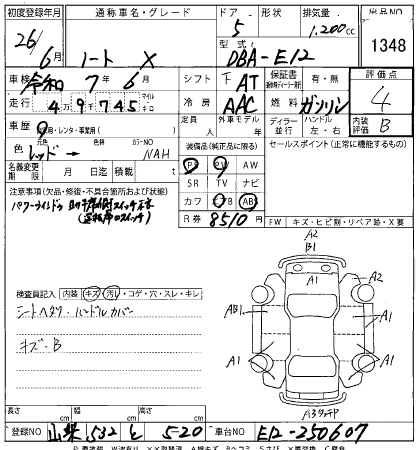 初度登録年月 通称車名・グレード ドア 形状 排気量 出品NO
26/6月 ノート X 5 1.200cc 1348
型式 DBA-E12
車検 令和 7年 6月 シフト F AT 保証書 有・無 評価点
走行 4万9千745 マイル キロ 冷房 AAC 燃料 ガソリン 4
車歴 自家用・レンタ・事業用( ) 定員 人 外車モデル 年 ディーラー 並行 ハンドル 左・右 内装評価 B
色 元色 レッド → 色替 カラーNO NAH 装備品(純正品に限る) セールスポイント(正常に機能するもの)
PS PW AW
名義変更期限 月 日迄 積載 t SR TV ナビ
注意事項(欠品・修復・不具合箇所および状態) カワ エアB ABS
R券 8510円
(運転席のスイッチ)
FW キズ・ヒビ割・リペア跡・X要
A2
B1
検査員記入 内装 キズ・汚レ・コゲ・穴・スレ・キレ A2 A2
シートヘタリ・ハンドルカバー AB1 A1
キズ・B A1 A1
長さ cm 幅 cm 高さ cm
登録NO 山梨 532 と 5-20 車台NO E12-250607